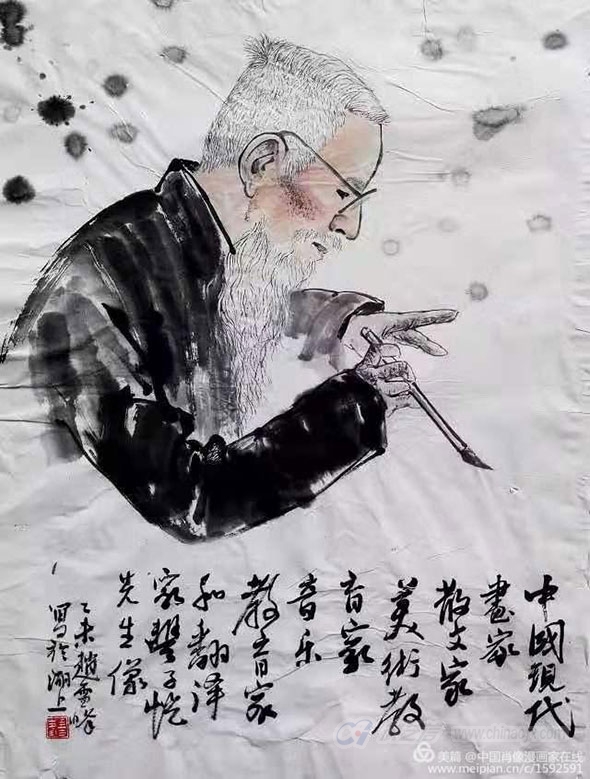 中國現代
畫家
散文家
美術教
育家
音乐
教育家
和翻译
家豐子恺
先生像
乙未趙雲峰
寫於湖上
美篇 @中国肖像漫画家在线
www.meipian.cn/c/1592591